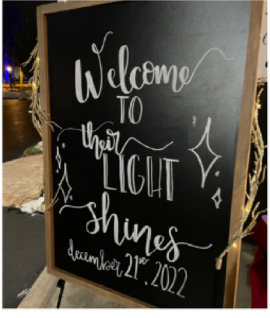 Welcome
TO
their
LIGHT
shines
december 21st, 2022